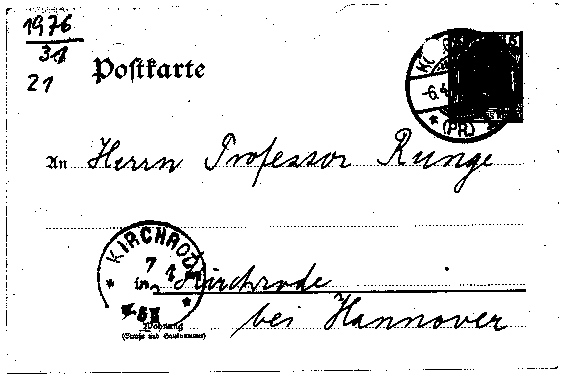 1976
31
21
Postkarte
-6.4
* (PR.)
An Herrn Professor Runge
* KIRCHRODE *
7 4
in Kirchrode
bei Hannover
Wohnung
(Straße und Hausnummer)